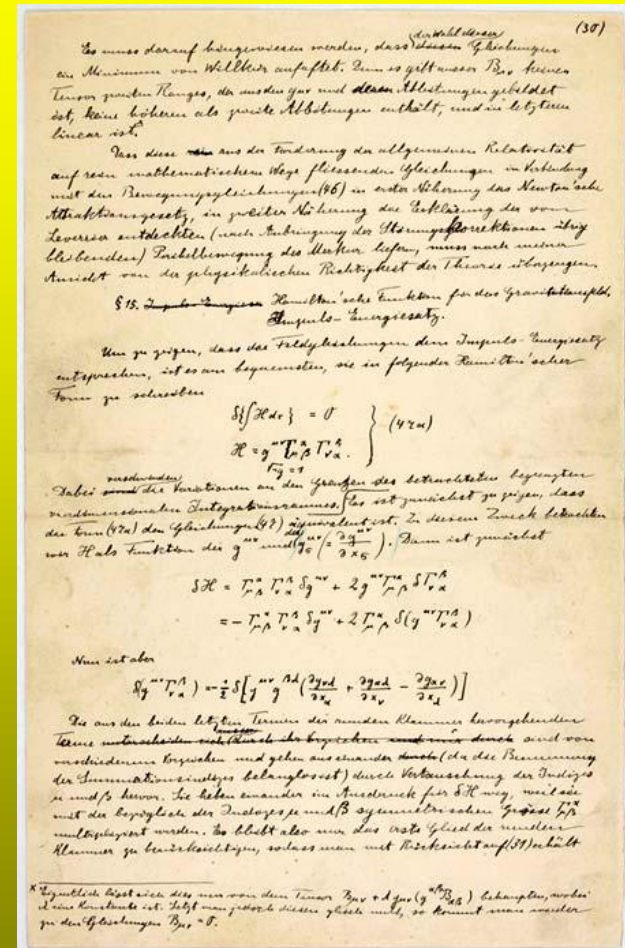 (30)
Es muss darauf hingewiesen werden, dass der Wahl dieser Gleichungen
ein Minimum von Willkür anhaftet. Denn es gibt ausser Bμν keinen
Tensor zweiten Ranges, der aus den gμν und deren Ableitungen gebildet
ist, keine höheren als zweite Ableitungen enthält, und in letzteren
linear ist.*
Dass diese aus der Forderung der allgemeinen Relativität
auf rein mathematischem Wege fliessenden Gleichungen in Verbindung
mit den Bewegungsgleichungen (46) in erster Näherung das Newton'sche
Attraktionsgesetz, in zweiter Näherung die Erklärung der von
Leverrier entdeckten (nach Anbringung der Störungskorrektionen übrig
bleibenden) Perihelbewegung des Merkur liefern, muss nach meiner
Ansicht von der physikalischen Richtigkeit der Theorie überzeugen.
§ 15. Impuls-Energiesa Hamilton'sche Funktion für das Gravitationsfeld,
Impuls-Energiesatz.
Um zu zeigen, dass die Feldgleichungen dem Impuls-Energiesatz
entsprechen, ist es am bequemsten, sie in folgender Hamilton'scher
Form zu schreiben
δ{∫H dτ} = 0
H = g^μν Γ^α_μβ Γ^β_να. } (47a)
√-g = 1
Dabei verschwinden die Variationen an den Grenzen des betrachteten begrenzten
vierdimensionalen Integrationsraumes. Es ist zunächst zu zeigen, dass
die Form (47a) den Gleichungen (47) äquivalent ist. Zu diesem Zweck betrachten
wir H als Funktion der g^μν und der g^μν_σ (= ∂g^μν/∂x_σ). Dann ist zunächst
δH = Γ^α_μβ Γ^β_να δg^μν + 2 g^μν Γ^α_μβ δΓ^β_να
= - Γ^α_μβ Γ^β_να δg^μν + 2 Γ^α_μβ δ(g^μν Γ^β_να)
Nun ist aber
δ(g^μν Γ^β_να) = -½ δ[g^μν g^βλ (∂g_νλ/∂x_α + ∂g_αλ/∂x_ν - ∂g_αν/∂x_λ)]
Die aus den beiden letzten Termen der runden Klammer hervorgehenden
Terme sind von
verschiedenem Vorzeichen und gehen auseinander (da die Benennung
der Summationsindizes belanglos ist) durch Vertauschung der Indizes
μ und β hervor. Sie heben einander im Ausdruck für δH weg, weil sie
mit der bezüglich der Indizes μ und β symmetrischen Grösse Γ^α_μβ
multipliziert werden. Es bleibt also nur das erste Glied der runden
Klammer zu berücksichtigen, sodass man mit Rücksicht auf (31) erhält
* Eigentlich lässt sich dies nur von dem Tensor Bμν + λ gμν (g^αβ Bαβ) behaupten, wobei
λ eine Konstante ist. Setzt man jedoch diesen gleich null, so kommt man wieder
zu den Gleichungen Bμν = 0.